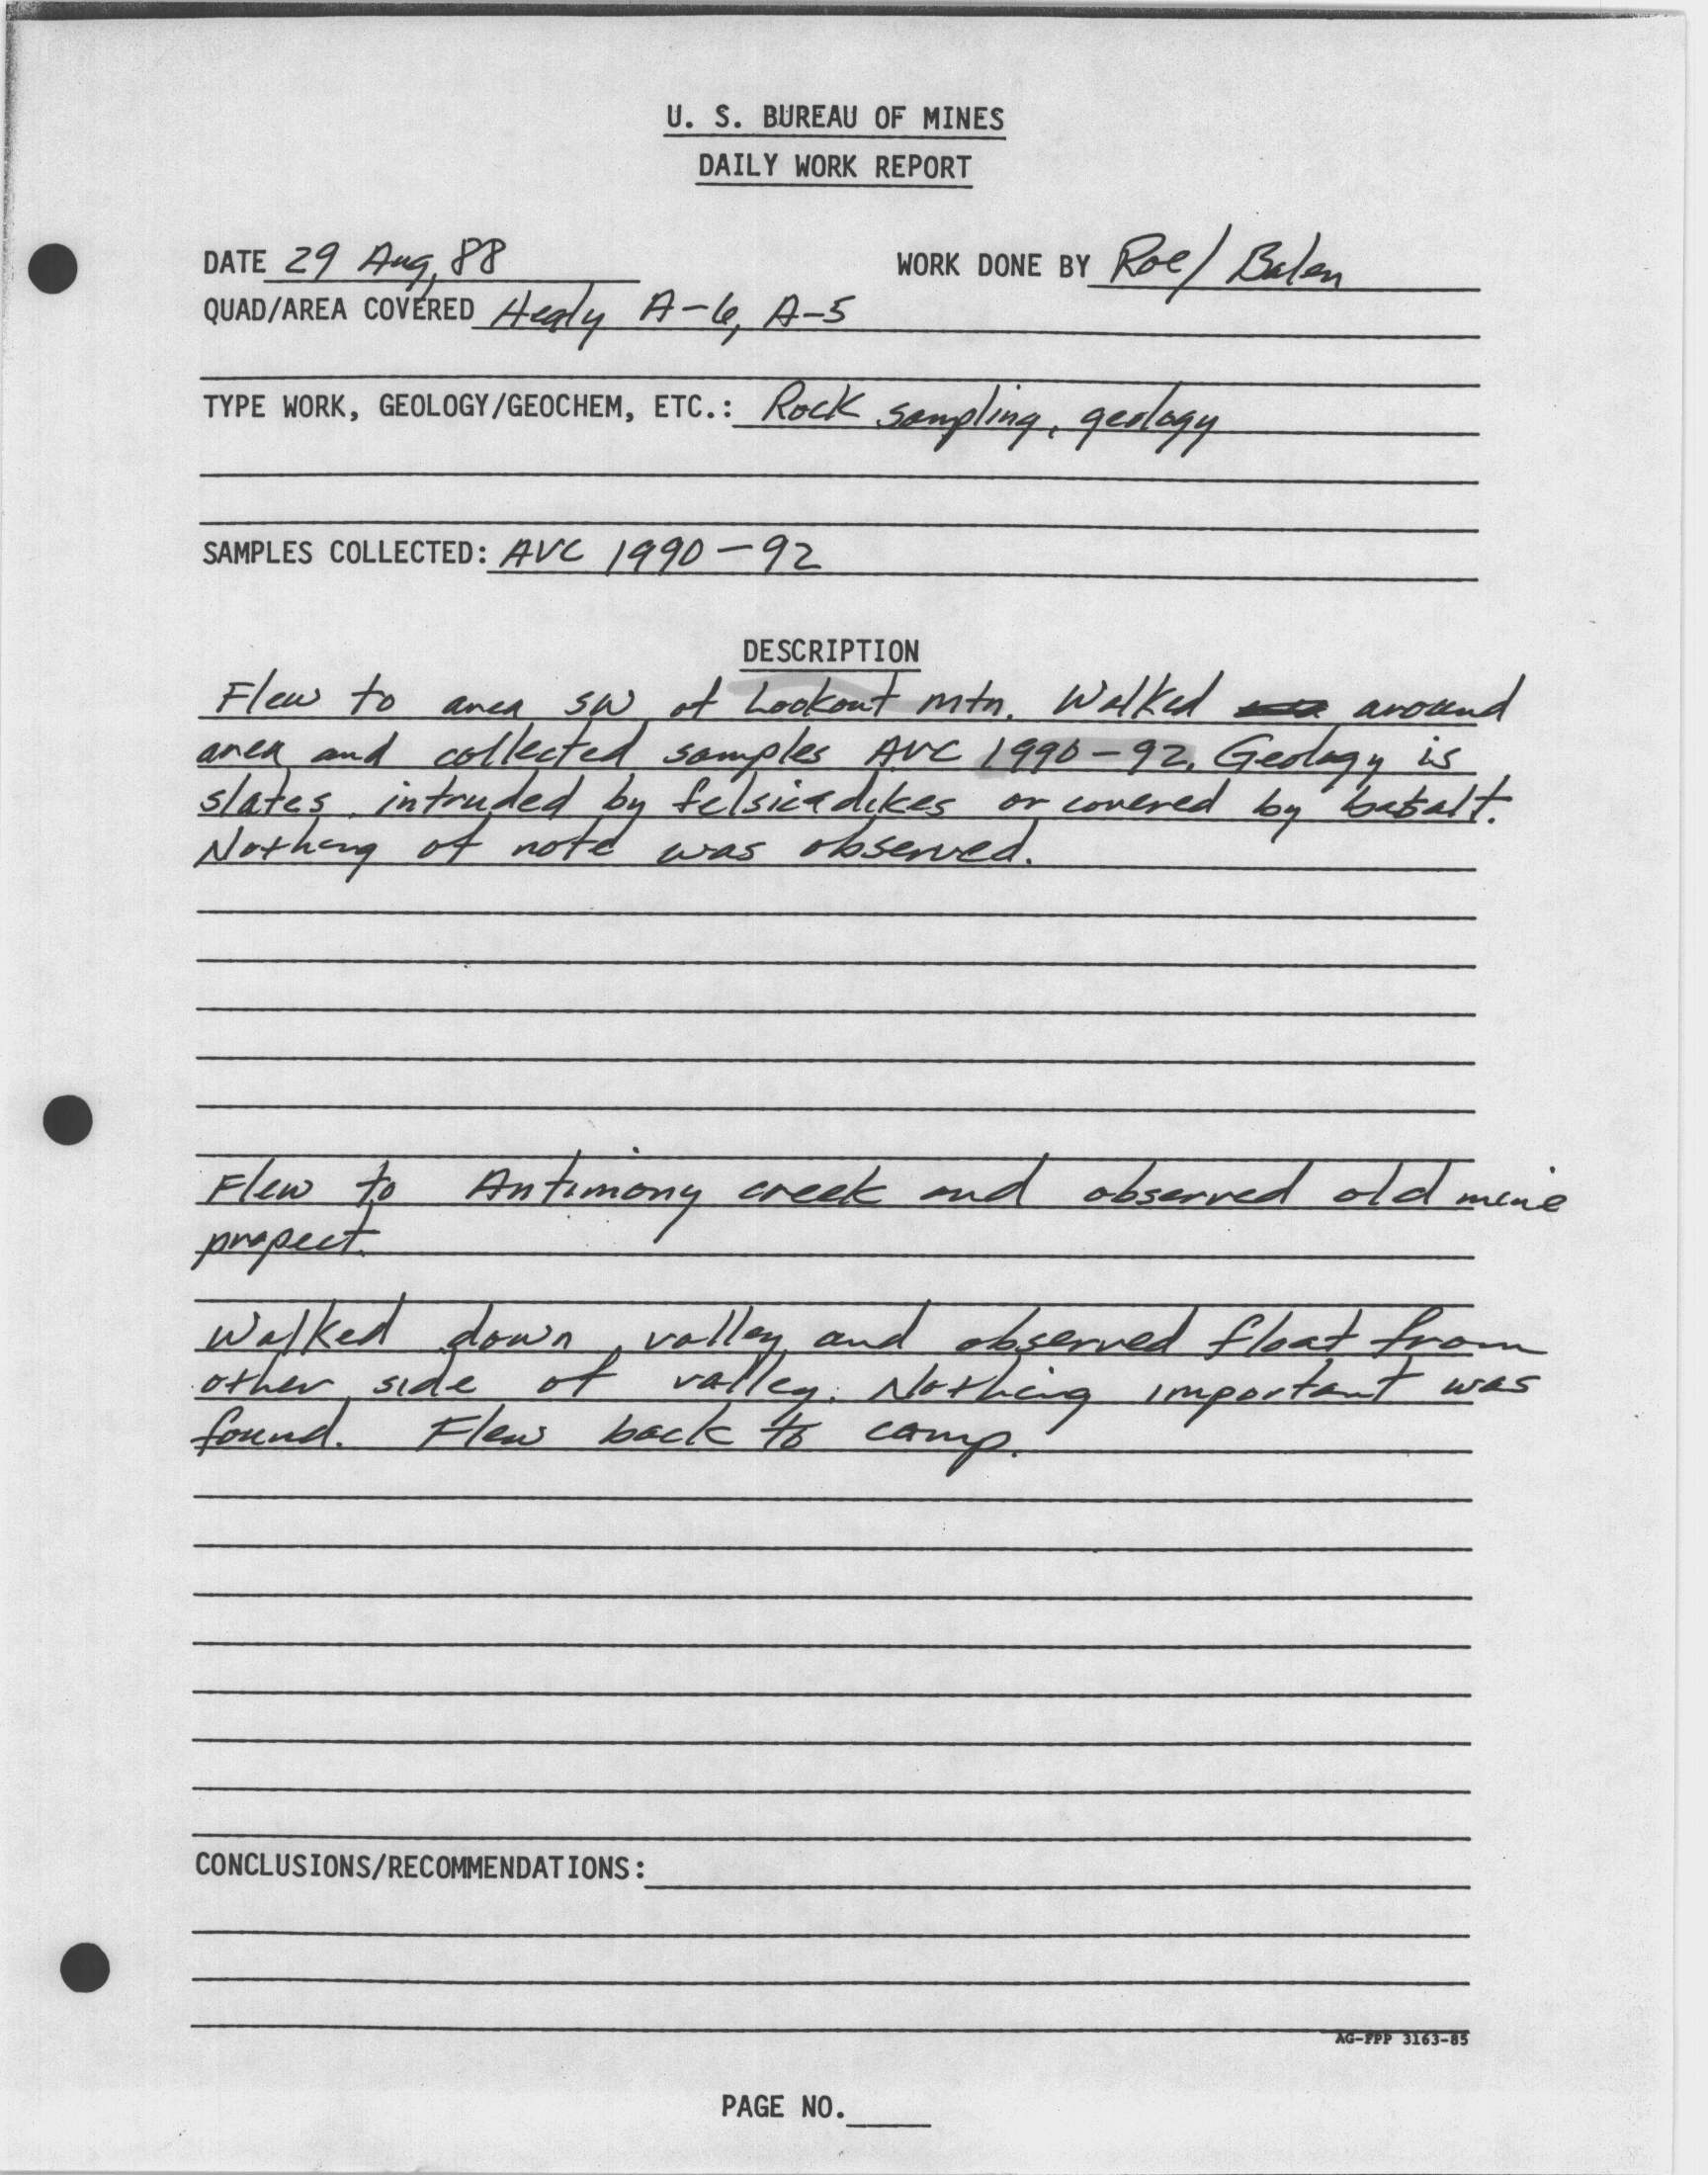 U. S. BUREAU OF MINES
DAILY WORK REPORT
DATE 29 Aug, 88 WORK DONE BY Roe/ Balen
QUAD/AREA COVERED Healy A-6, A-5
TYPE WORK, GEOLOGY/GEOCHEM, ETC.: Rock sampling, geology
SAMPLES COLLECTED: AVC 1990-92
DESCRIPTION
Flew to area SW of Lookout mtn. Walked around
area and collected samples AVC 1990-92. Geology is
slates intruded by felsic dikes or covered by basalt.
Nothing of note was observed.
Flew to Antimony creek and observed old mine
propect.
Walked down valley and observed float from
other side of valley. Nothing important was
found. Flew back to camp.
CONCLUSIONS/RECOMMENDATIONS:
AG-FPP 3163-85
PAGE NO.